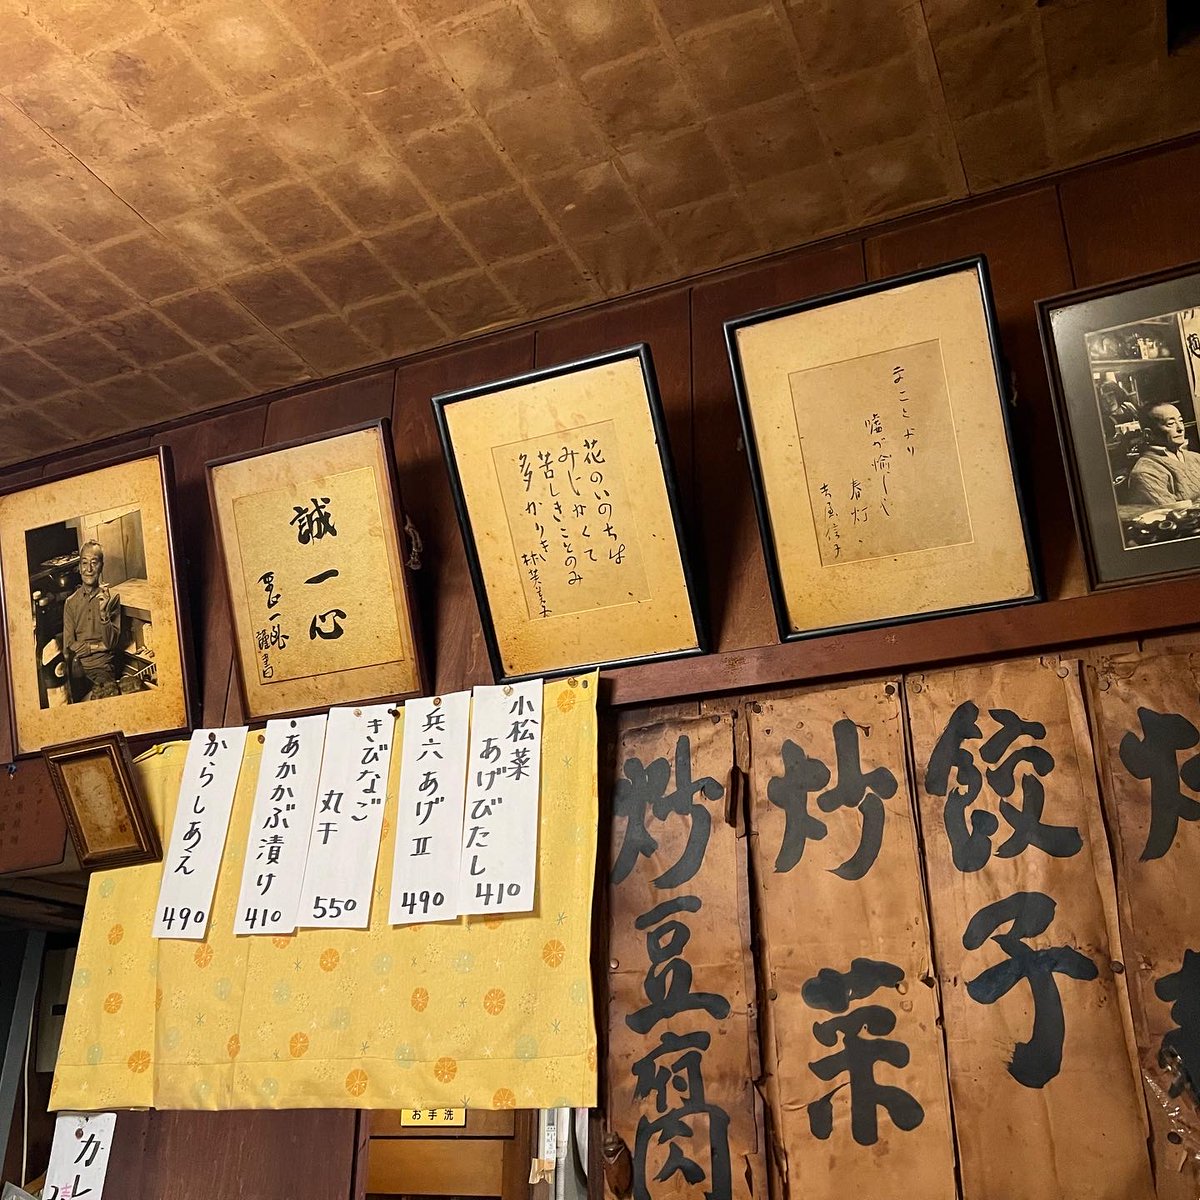 誠一心
謹書
花のいのちは
みじかくて
苦しきことのみ
多かりき
林芙美子
まことより
嘘が愉しや
春灯
吉屋信子
小松菜
あげびたし
410
兵六あげⅡ
490
きびなご
丸干
550
あかかぶ漬け
410
からしあえ
490
餃子
炒菜
炒豆腐
お手洗
カレ